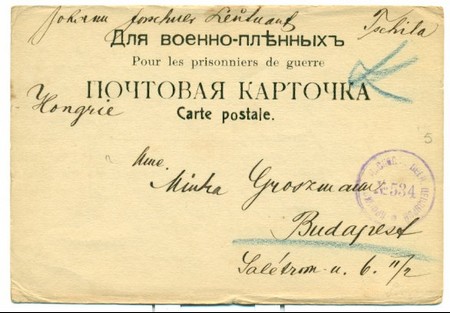 Johann Leutnant Tschita
Для военно-плѣнныхъ
Pour les prisonniers de guerre
ПОЧТОВАЯ КАРТОЧКА
Carte postale.
Hongrie
5
Mme.
Minka Groszmann
№ 534
Budapest
Salétrom-u. 6. II/2